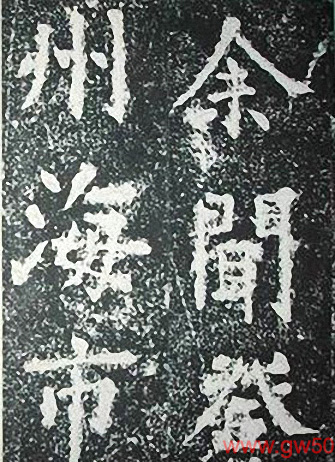 余聞登
州海市
www.gw50